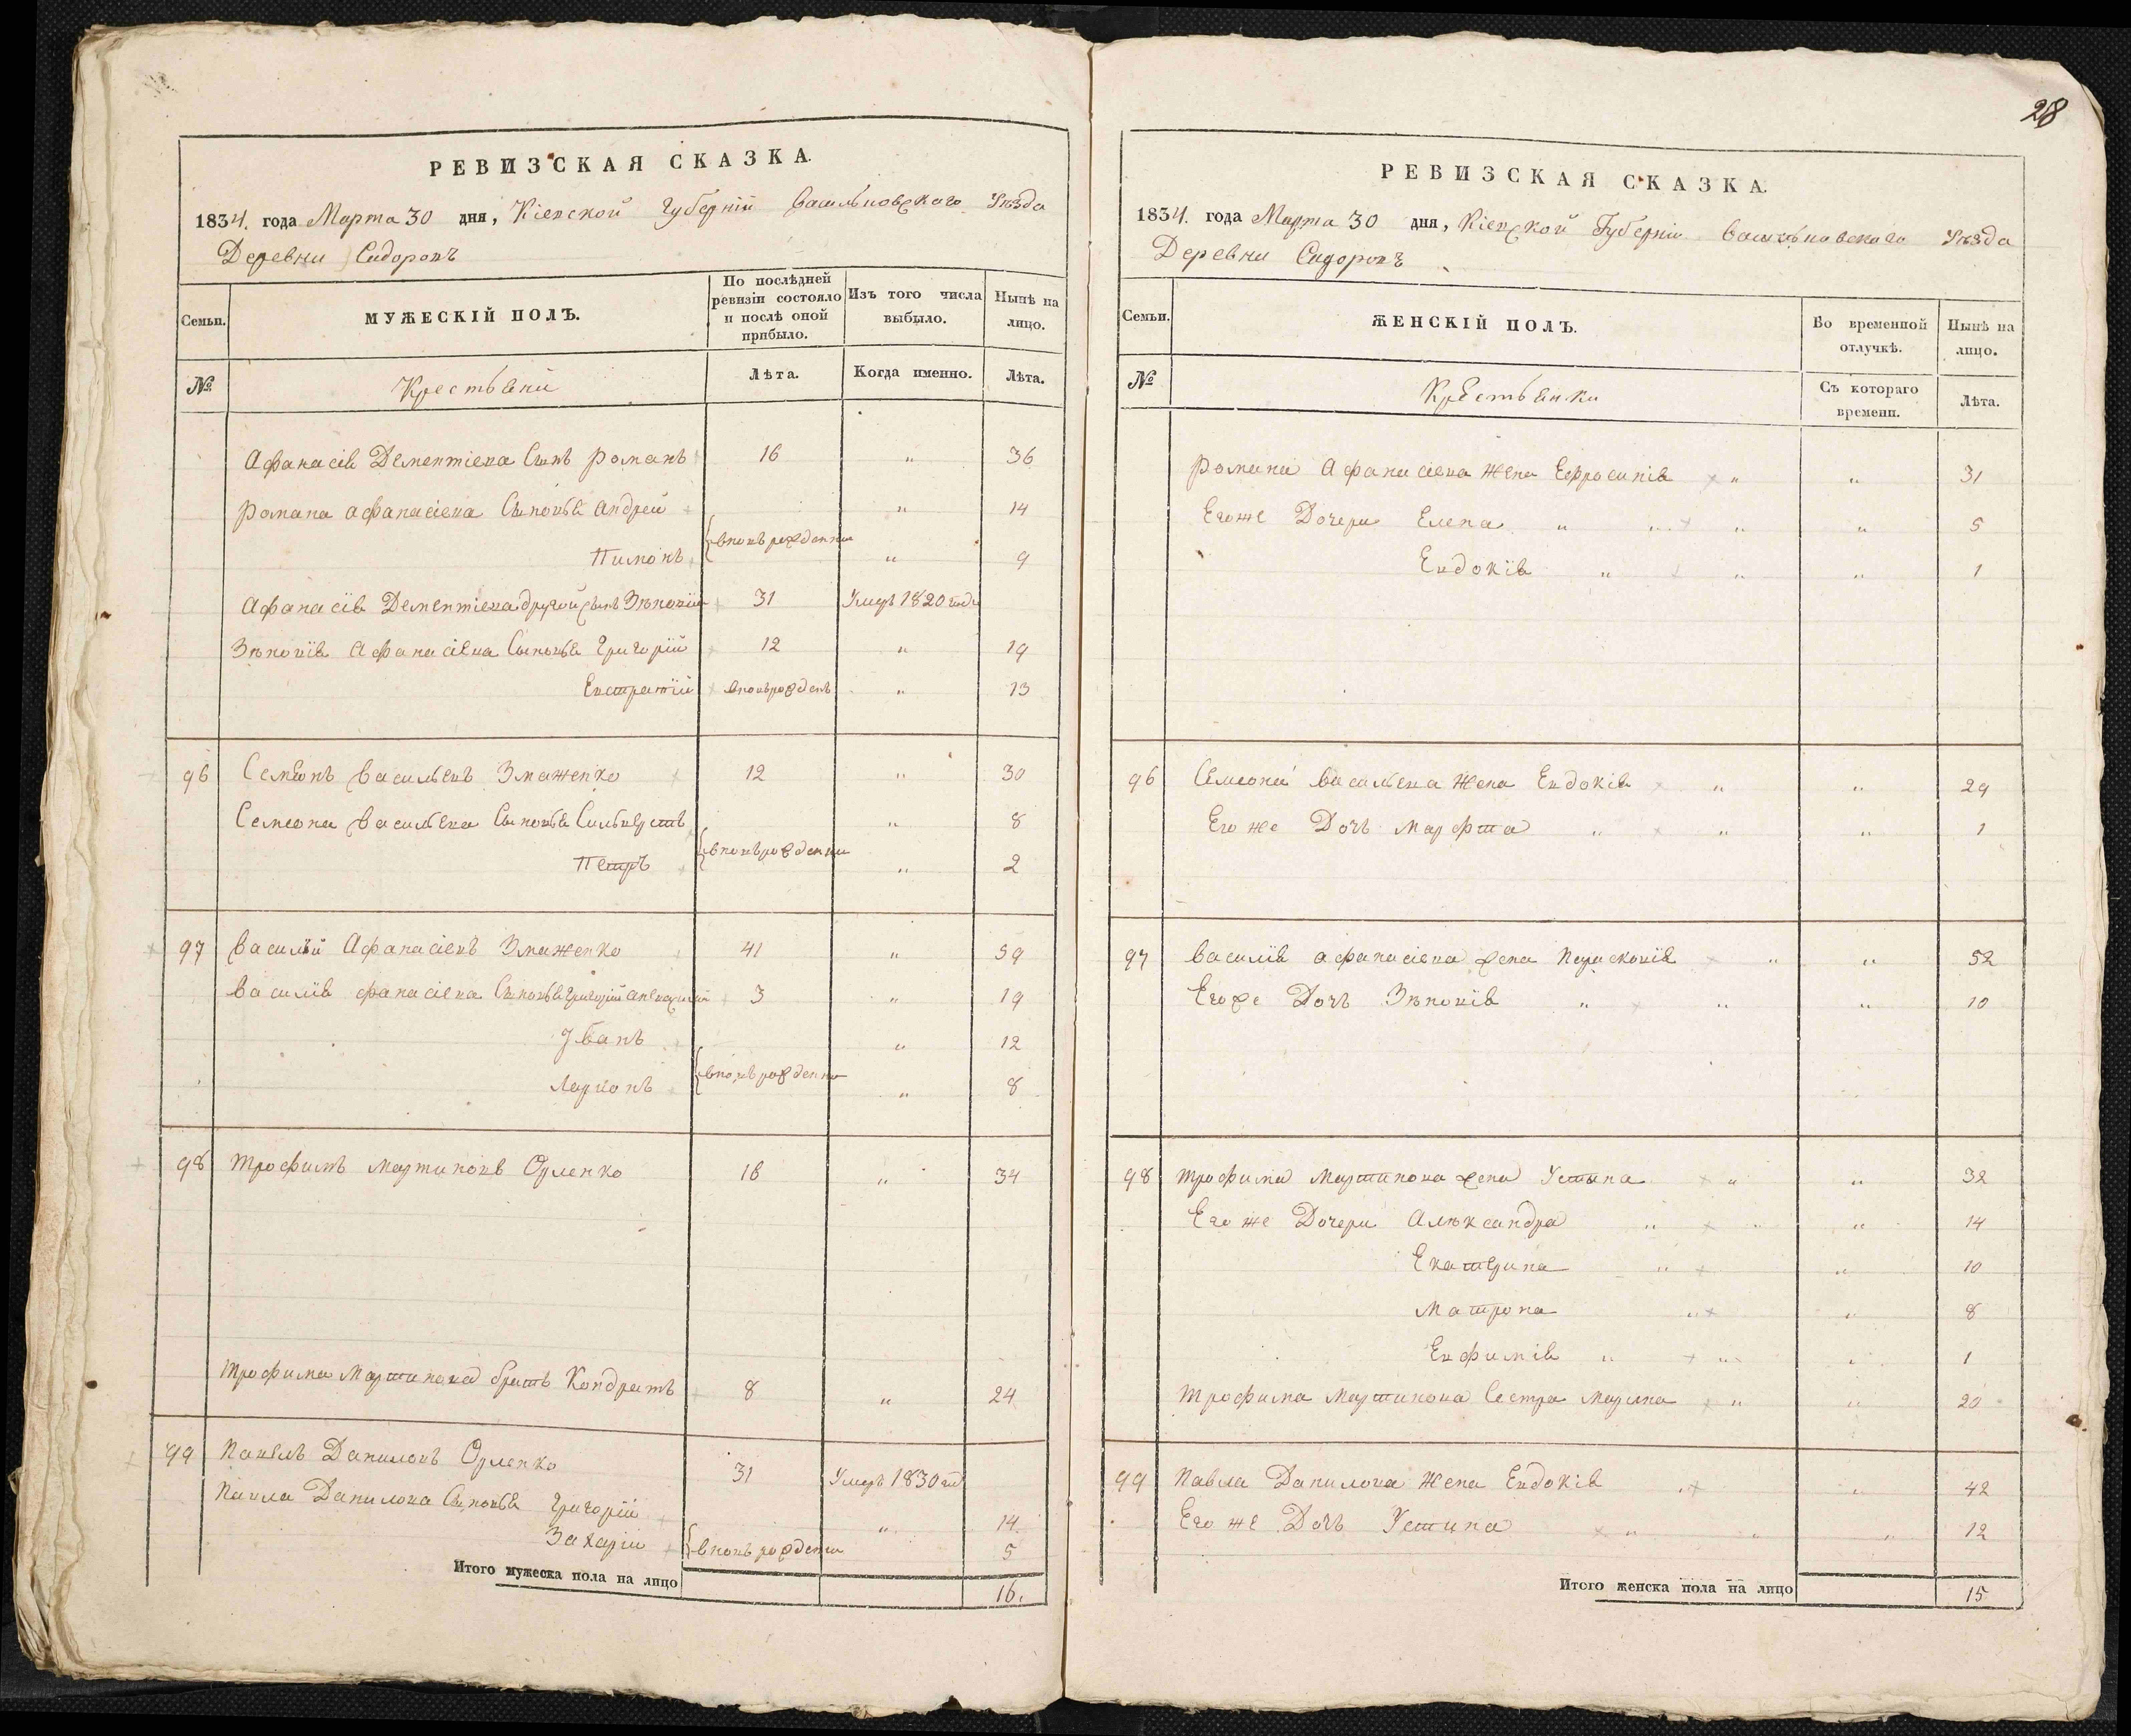 РЕВИЗСКАЯ СКАЗКА.
1834. года Марта 30 дня, Кіевской Губерній Васильковскаго Уѣзда
Деревни Сидоровъ
Семьи. МУЖЕСКІЙ ПОЛЪ. По послѣдней ревизіи состояло и послѣ оной прибыло. Изъ того числа выбыло. Нынѣ на лицо.
№ Крестьяни Лѣта. Когда именно. Лѣта.
Афанасія Дементіева Сынъ Романъ 16 " 36
Романа Афанасіева Сыновья Андрей " 14
вновь рожденни
Пимонъ " 9
Афанасія Дементіева другой сынъ Зѣновій 31 Умеръ 1820 года
Зѣновія Афанасіева Сыновья Григорій 12 " 19
Евстратій вновь рожденъ " 13
96 Семѣонъ Васильевъ Змаженко 12 " 30
Семиона Васильева Сыновья Сильвестъ " 8
вновь рожденни
Петръ " 2
97 Василій Афанасіевъ Змаженко 41 " 59
Василія Афанасіева Сыновья Григорій 3 " 19
Уванъ " 12
вновь рожденни
Ларионъ " 8
98 Трофимъ Мартиновъ Орленко 16 " 34
Трофима Мартинова братъ Кондратъ 8 " 24
99 Павелъ Даниловъ Орленко 31 Умеръ 1830 год
Павла Данилова Сыновья Григорій " 14
Захарій вновь рожденни 5
Итого мужеска пола на лицо 16.
28
РЕВИЗСКАЯ СКАЗКА.
1834. года Марта 30 дня, Кіевской Губерніи Васильковскаго Уѣзда
Деревни Сидоровъ
Семьи. ЖЕНСКІЙ ПОЛЪ. Во временной отлучкѣ. Нынѣ на лицо.
№ Крестьянки Съ котораго времени. Лѣта.
Романа Афанасіева Жена Ефросинія " " 31
Егоже Дочери Елена " " " " 5
Евдокія " " " 1
96 Семиона Васильева Жена Евдокія " " 29
Его же Дочь Марфта " " " 1
97 Василія Афанасіева жена Парасковія " " 52
Егоже Дочь Зѣновія " " " 10
98 Трофима Мартинова жена Устина " " 32
Его же Дочери Алѣксандра " " " 14
Екатерина " " 10
Матрона " " 8
Евфимія " " " 1
Трофима Мартинова Сестра Марина " " 20
99 Павла Данилова Жена Евдокія " " 42
Его же Дочь Устина " " " 12
Итого женска пола на лицо 15